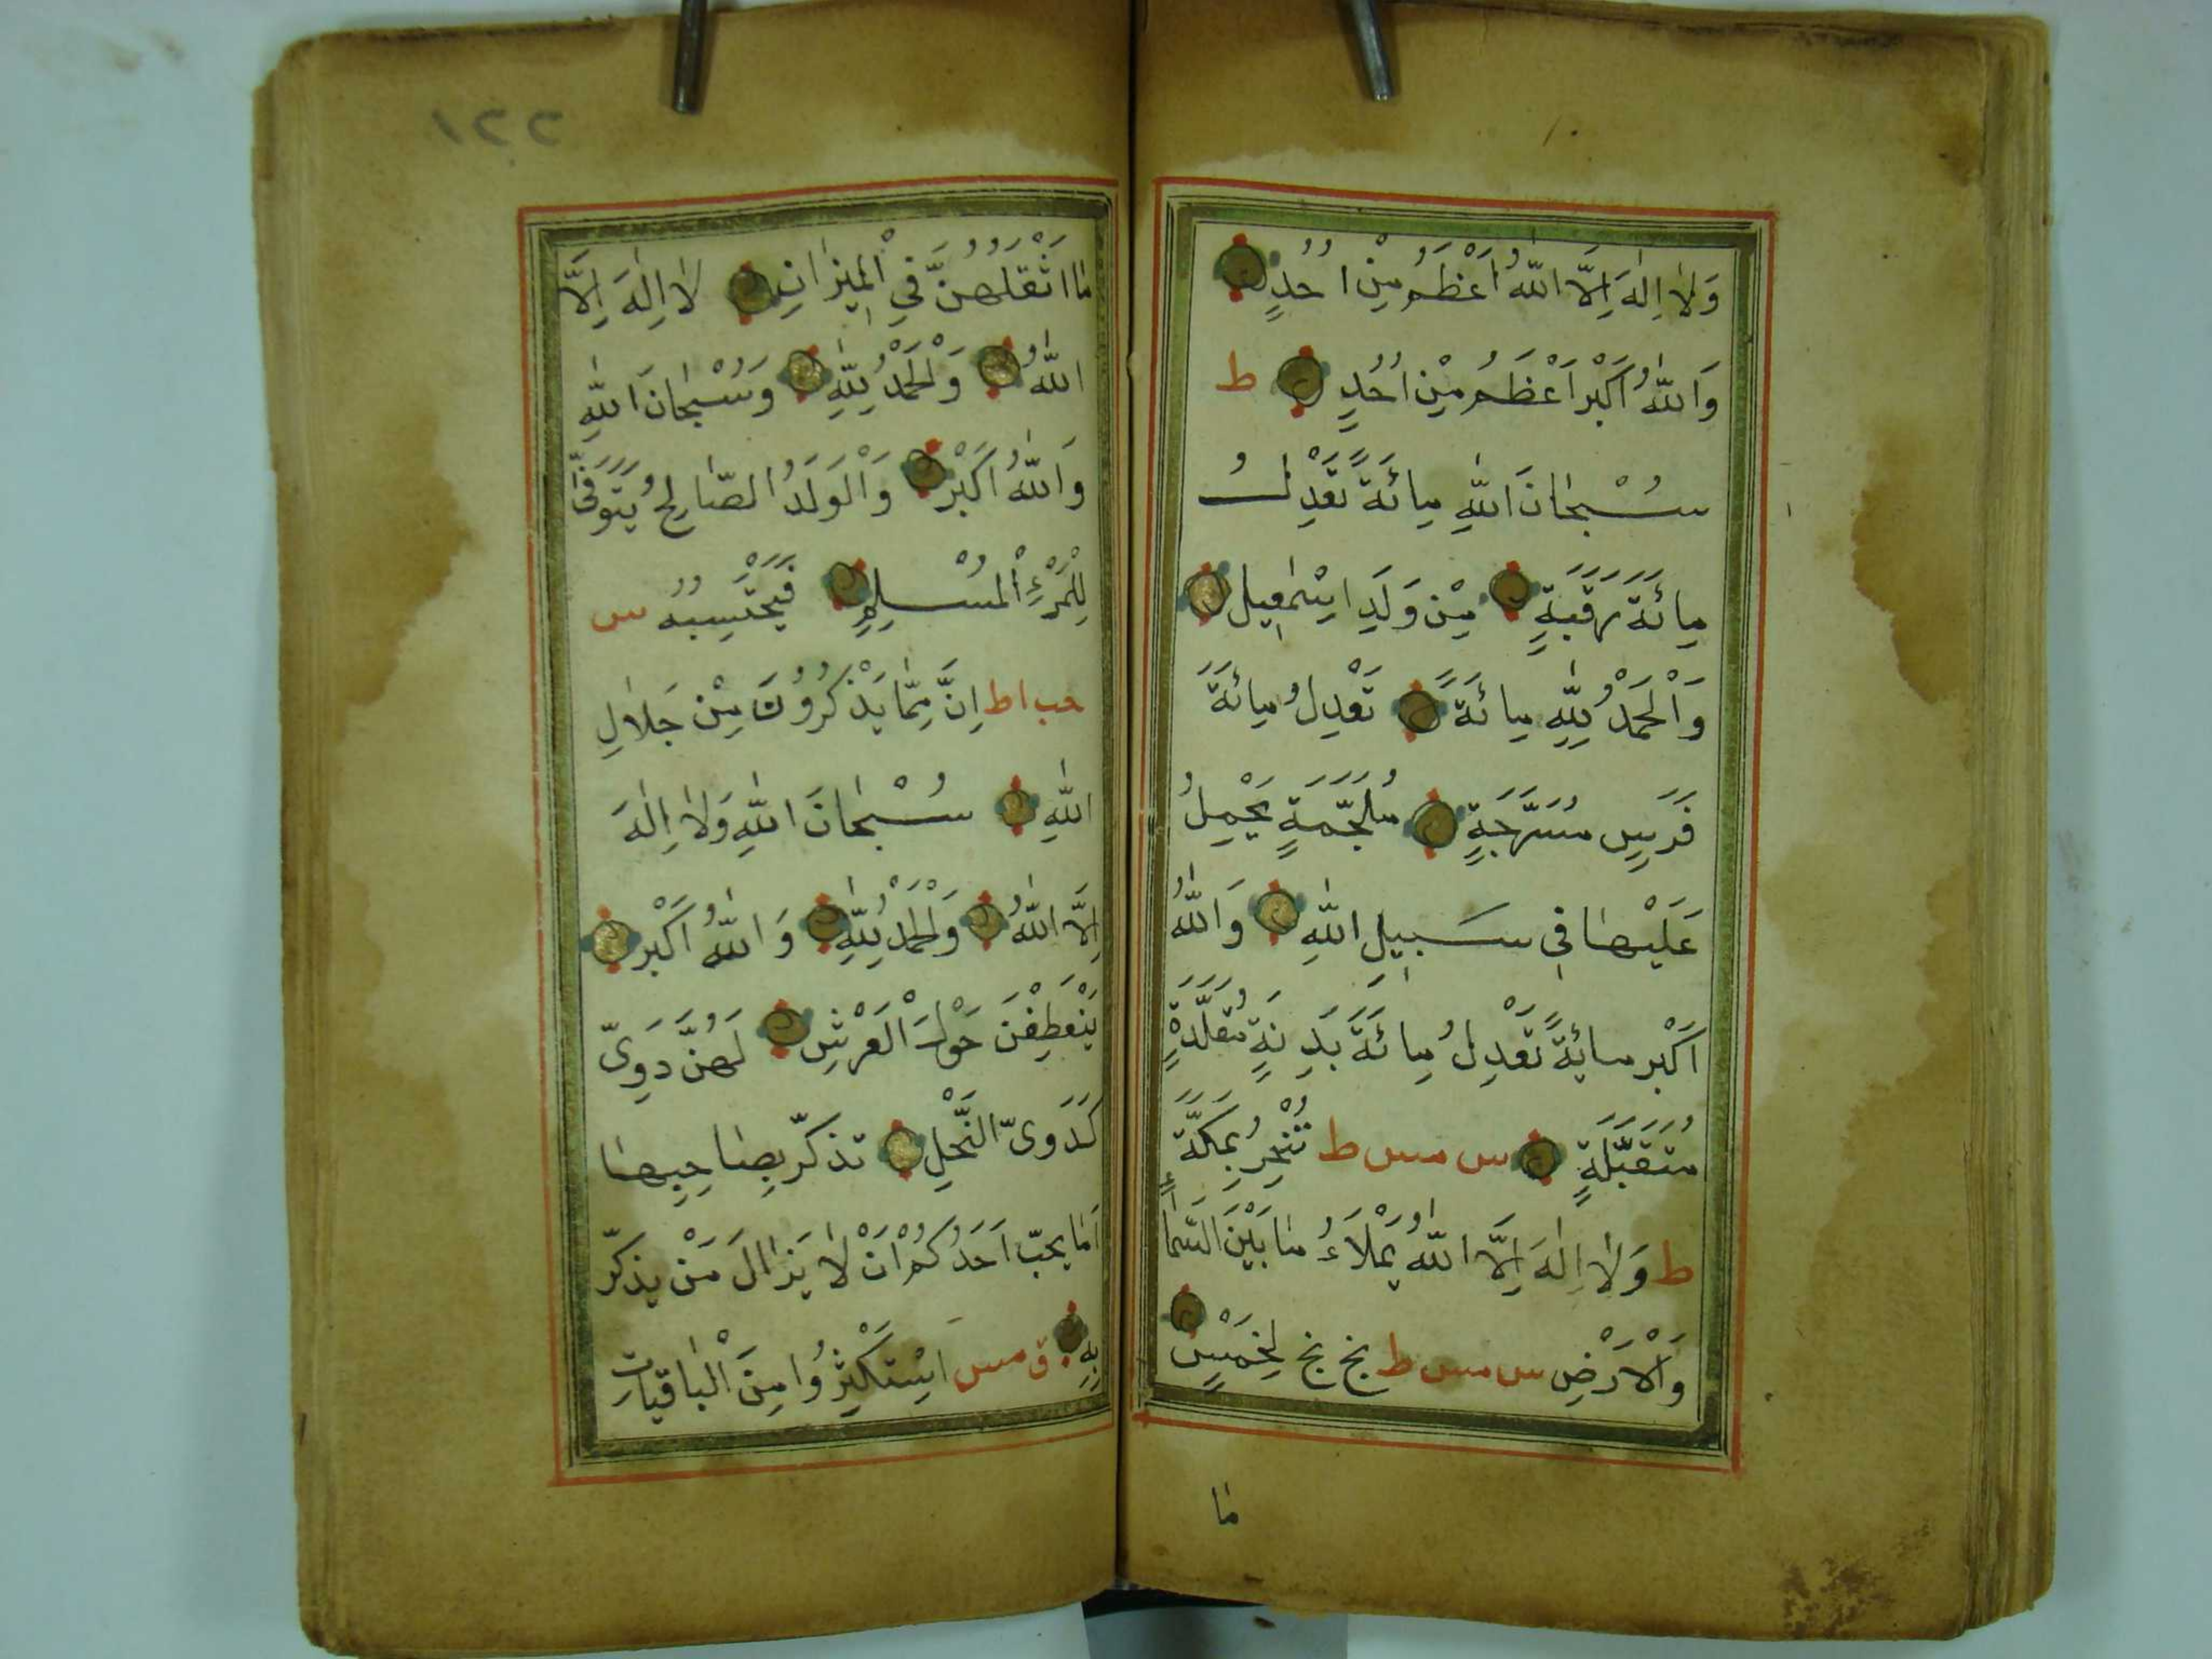 وَلَا اِلٰهَ اِلَّا اللّٰهُ اَعْظَمُ مِنْ اُحُدٍ
وَاللّٰهُ اَكْبَرْ اَعْظَمُ مِنْ اُحُدٍ ط
سُبْحَانَ اللّٰهِ مِائَةً تَعْدِلُ
مِائَةَ رَقَبَةٍ مِنْ وَلَدِ اِسْمٰعِيلَ
وَالْحَمْدُ لِلّٰهِ مِائَةً تَعْدِلُ مِائَةَ
فَرَسٍ مُسَرَّجَةٍ مُلَجَّمَةٍ يَحْمِلُ
عَلَيْهَا فِي سَبِيلِ اللّٰهِ وَاللّٰهُ
اَكْبَرْ مِائَةً تَعْدِلُ مِائَةَ بَدَنَةٍ مُقَلَّدَةٍ
مُتَقَبَّلَةٍ س مس ط تُنْحَرُ بِمَكَّةَ
ط وَلَا اِلٰهَ اِلَّا اللّٰهُ يَمْلَاُ مَا بَيْنَ السَّمَاءِ
وَالْاَرْضِ س مس ط بخ بخ لِخَمْسٍ
مَا
١٢٢
مَا اَثْقَلَهُنَّ فِي الْمِيزَانِ لَا اِلٰهَ اِلَّا
اللّٰهُ وَالْحَمْدُ لِلّٰهِ وَسُبْحَانَ اللّٰهِ
وَاللّٰهُ اَكْبَرْ وَالْوَلَدُ الصَّالِحُ يُتَوَفَّى
لِلْمَرْءِ الْمُسْلِمِ فَيَحْتَسِبُهُ س
حب ا ط اِنَّ مِمَّا يَذْكُرُونَ مِنْ جَلَالِ
اللّٰهِ سُبْحَانَ اللّٰهِ وَلَا اِلٰهَ
اِلَّا اللّٰهُ وَالْحَمْدُ لِلّٰهِ وَاللّٰهُ اَكْبَرْ
يَنْعَطِفْنَ حَوْلَ الْعَرْشِ لَهُنَّ دَوِىّ
كَدَوِىّ النَّحْلِ تذكّر بِصَاحِبِهَا
اَمَا يحبّ اَحَدُكُمْ اَنْ لَا يَزَالَ مَنْ يذكّر
بِهِ ق مس اِسْتَكْثِرُوا مِنَ الْبَاقِيَاتِ